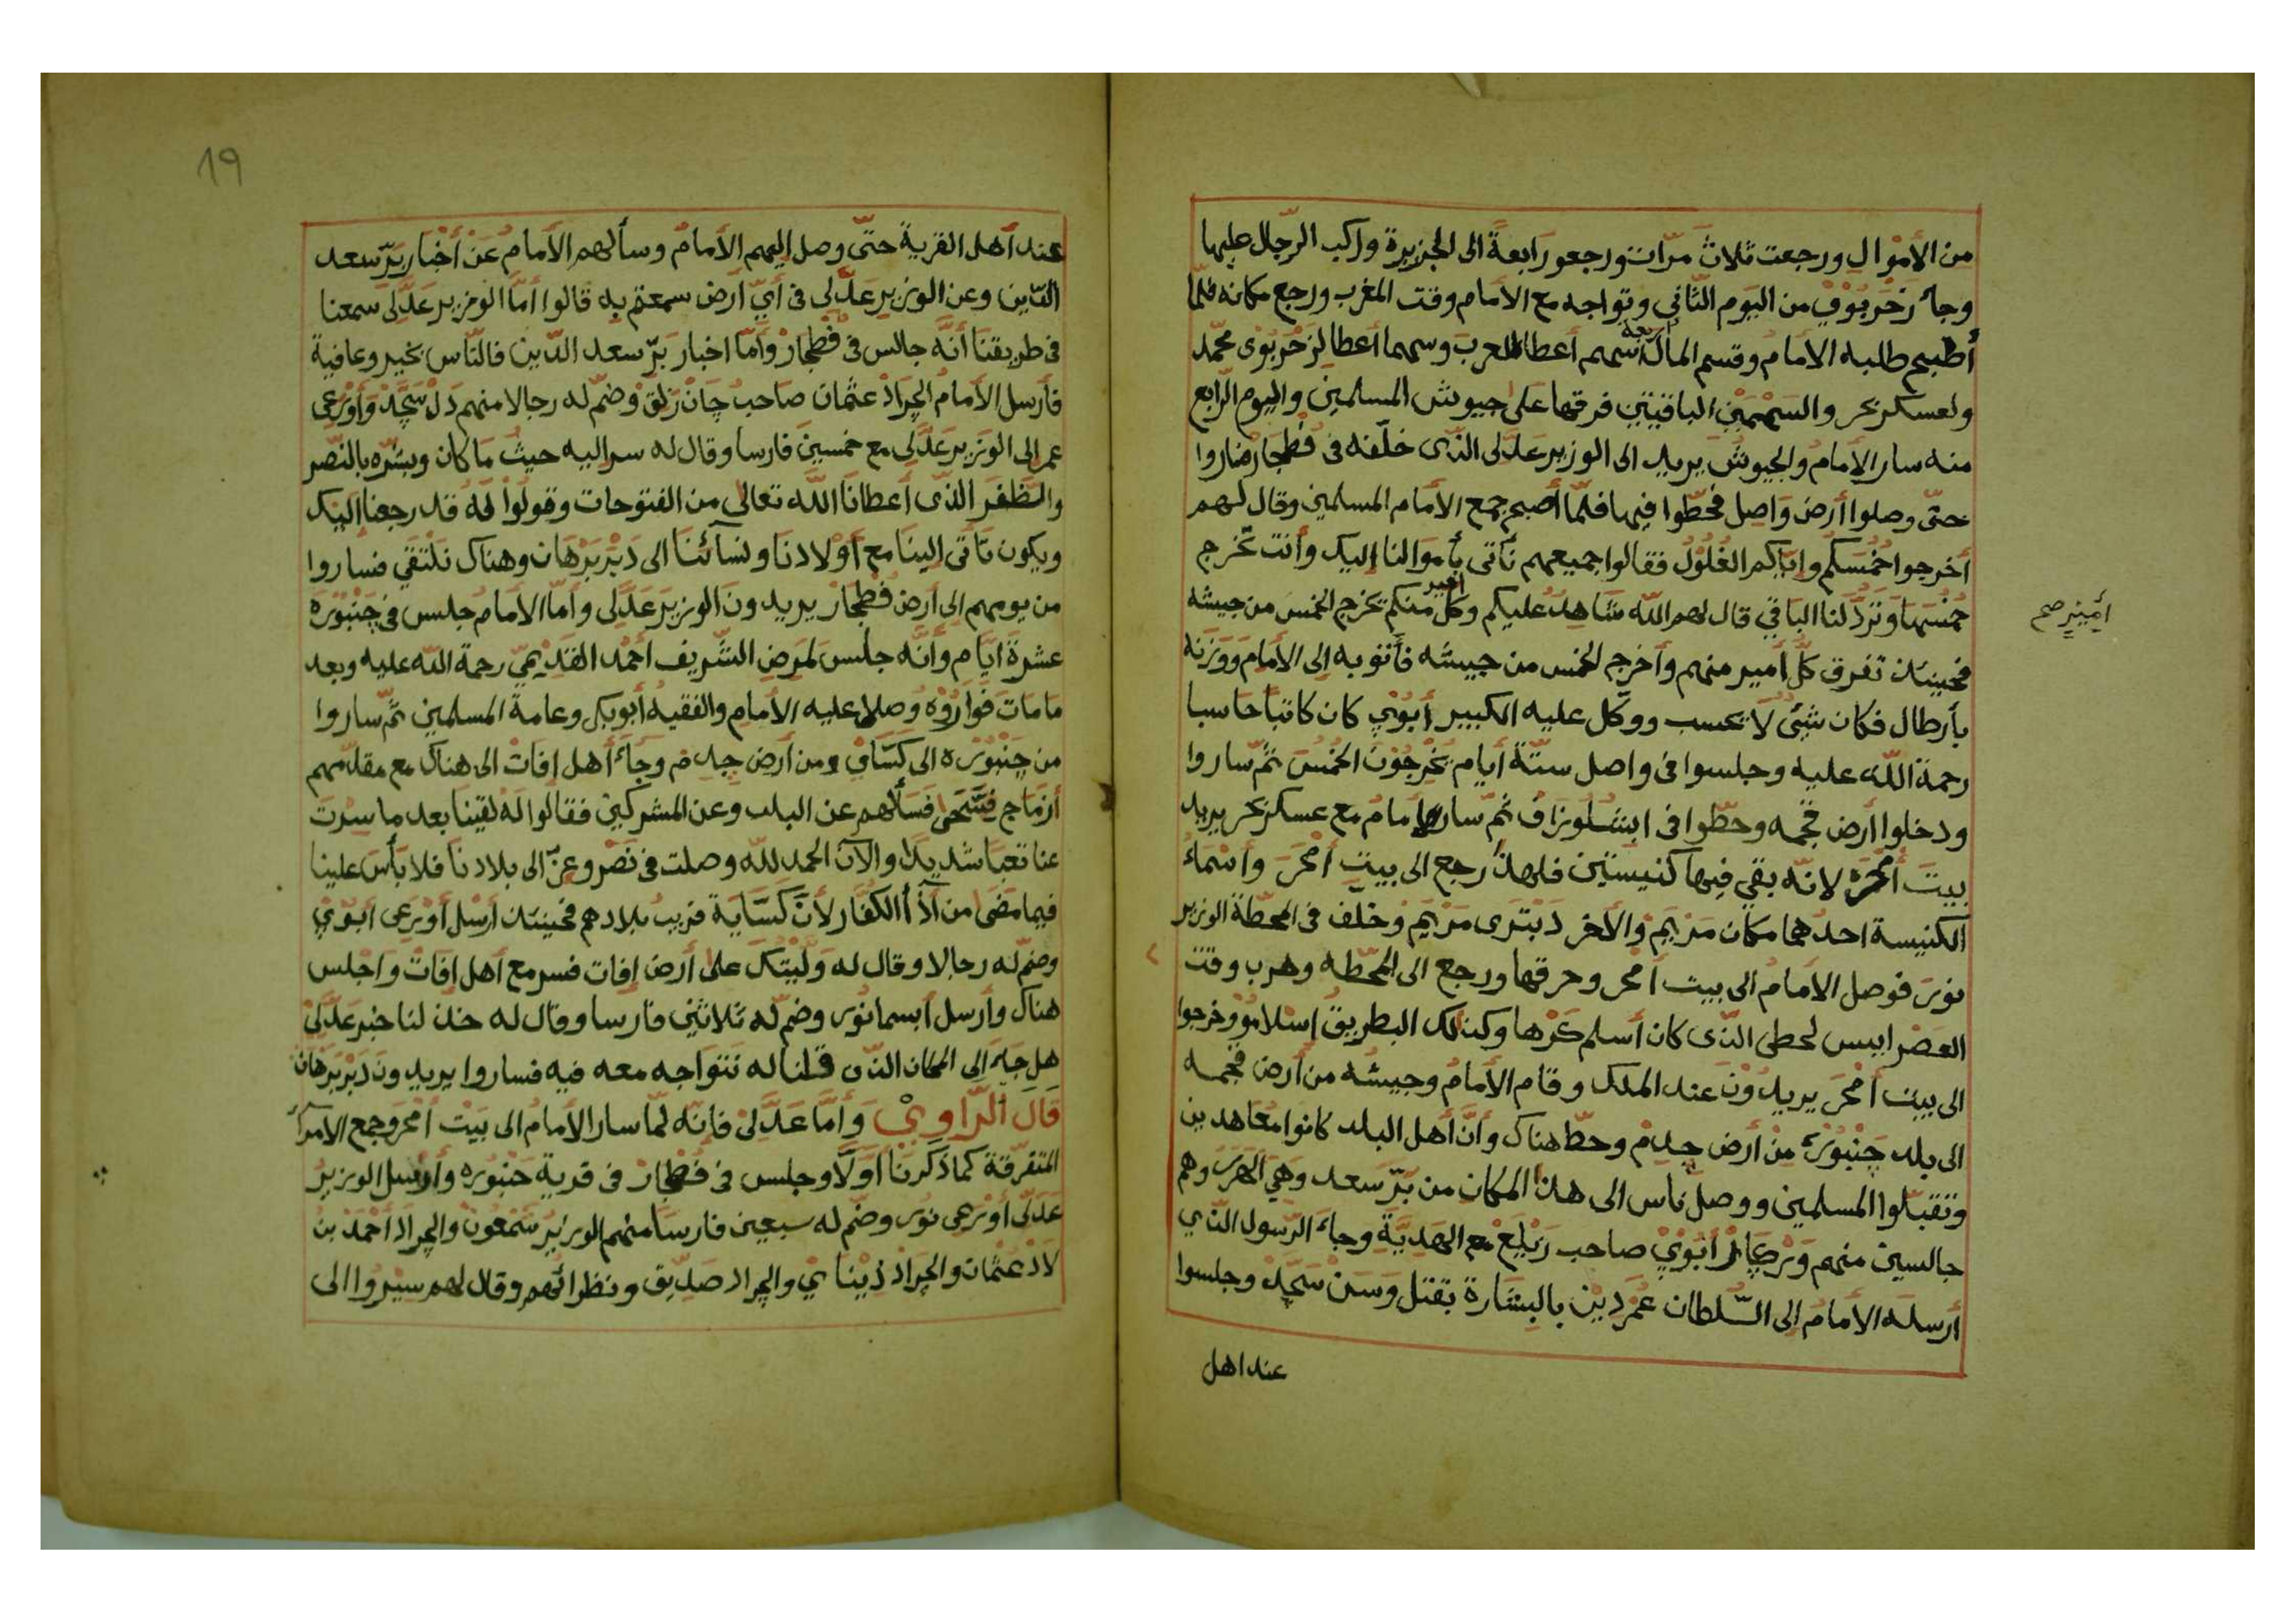 من الأموال ورجعت ثلاث مرّات ورجعو رابعةً الى الجزيرة واركب الرّجال عليها
وجاء زخربوي من اليوم الثّاني وتواجه مع الامام وقت المغرب ورجع مكانه فلمّا
أصبح طلبه الامام وقسم المال أربعة أسهم أعطا للعرب وسهما أعطا لزحربوى محمّد
ولعسكر زحر والسّهمين الباقيتين فرقها على جيوش المسلمين واليوم الرّابع
منه سار الإمام والجيوش يريد الى الوزير عدلى الذى خلّفه فى فطجار فساروا
حتّى وصلوا أرض واصل فحطّوا فيها فلمّا أصبح جمع الأمام المسلمين وقال لهم
أخرجوا خمسكم وايّاكم الغلول فقالوا جميعهم نأتى بأموالنا إليك وأنت تخرج
خمسها وتردّ لنا الباقي قال لهم الله شاهد عليكم وكلّ أمير منكم يخرج الخمس من جيشه
أمير صح
فحينئذ تفرق كلّ أمير منهم وأخرج الخمس من جيشه فأتو به إلى الأمام ووزنه
بأرطال فكان شئ لا يحسب ووكّل عليه الكبير أبوني كان كاتبا حاسبا
رحمة الله عليه وجلسوا فى واصل ستّة أيام يخرجون الخمس ثمّ ساروا
ودخلوا أرض فجمه وحطّوا فى ثمّ سار الإمام مع عسكر زحر يريد
بيت أمحره لانّه بقي فيها كنيستين فلهذا رجع الى بيت أمحر وأسماء
الكنيسة احدهما مكان مريم والأخر دبترى مريم وخلف فى المحطّة الوزير
نور فوصل الامام الى بيت أمحر وحرقها ورجع الى المحطّه وهرب وقت
العصر لحطى الذى كان أسلم كرها وكذلك البطريق اسلامو وخرجوا
الى بيت أمحر يريدون عند الملك وقام الأمام وجيشه من أرض فجمه
الى بلد جنبوره من أرض جدم وحطّ هناك وأنّ أهل البلد كانوا معاهدين
وتقبّلوا المسلمين ووصل ناس الى هذا المكان من برّ سعد وهي الهرر وهم
جالسين منهم ورجار أبوني صاحب زيلع مع الهديّة وجاء الرّسول الذي
أرسله الأمام إلى السّلطان عمردين بالبشارة بقتل وسن سجّد وجلسوا
عند اهل
19
عند أهل القرية حتّى وصل اليهم الأمام وسألهم الأمام عن أخبار برّ سعد
الدّين وعن الوزير عدّلى فى أيّ أرض سمعتم به قالوا أمّا الوزير عدّلى سمعنا
فى طريقنا أنّه جالس فى فطجار وأمّا اخبار برّ سعد الدّين فالنّاس بخير وعافية
فأرسل الأمام الجراد عثمان صاحب جان زلق وضمّ له رجالا منهم دل سجّد وأورعى
عمر الى الوزير عدّلى مع خمسين فارسا وقال له سر اليه حيث ما كان وبشّره بالنّصر
والظفر الذى أعطانا الله تعالى من الفتوحات وقولوا له قد رجعنا اليك
ويكون تأتى الينا مع أولادنا ونسائنا الى دبر برهان وهناك نلتقي فساروا
من يومهم إلى أرض فطجار يريدون الوزير عدّلى وأمّا الأمام جلس فى جنبوره
عشرة ايّام وأنّه جلس لمرض الشّريف أحمد القديميّ رحمة الله عليه وبعد
ما مات فواروه وصلا عليه الأمام والفقيه أبوبكر وعامة المسلمين ثمّ ساروا
من جنبوره الى كسّاى ومن أرض جدم وجاء أهل إفات الى هناك مع مقدّمهم
أزماج فسألهم عن البلد وعن المشركين فقالوا له لقينا بعد ما سرت
عنا تعبا شديدا والآن الحمد لله وصلت فى نصر وعزّ الى بلادنا فلا بأس علينا
فيما مضى من أذأ الكفّار لأنّ كسّاية قريب بلادهم فحينئذ أرسل أورعى أبوني
وضمّ له رجالا وقال له وليتك على أرض إفات فسر مع أهل إفات واجلس
هناك وأرسل أبسما نور وضمّ له ثلاثين فارسا وقال له خذ لنا خبر عدّلى
هل جاء إلى المكان الذى قلنا له نتواجه معه فيه فساروا يريدون دبر برهان
قال الرّاوي وأمّا عدّلى فإنّه لمّا سار الأمام الى بيت أمحر وجمع الأمرآء
المتفرقة كما ذكرنا أوّلا وجلس فى فطجار فى قرية جنبوره وأرسل الوزير
عدلّى أورعى نور وضمّ له سبعين فارسا منهم الوزير شمعون والجراد أحمد بن
لاد عثمان والجراد ذيناي والجراد صدّيق ونظرائهم وقال لهم سيروا الى